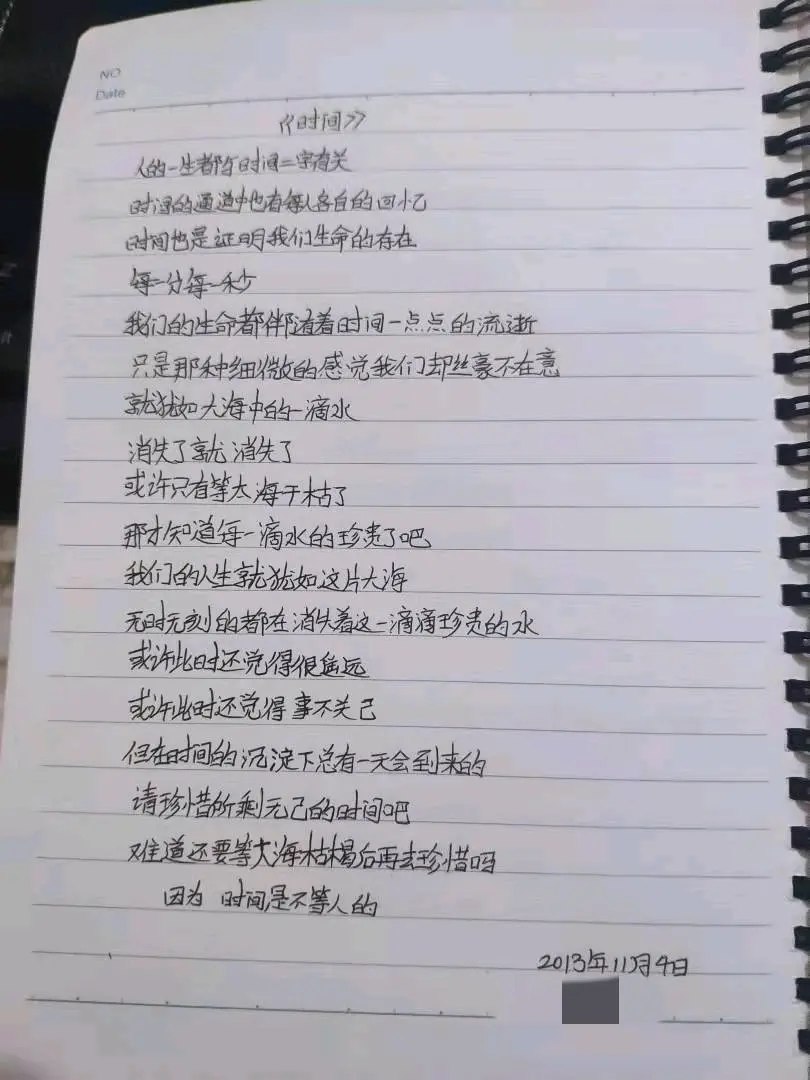 NO
Date
《时间》
人的一生都与时间二字有关
时间的通道中也有每人各自的回忆
时间也是证明我们生命的存在
每一分每一秒
我们的生命都伴随着时间一点点的流逝
只是那种细微的感觉我们却丝豪不在意
就犹如大海中的一滴水
消失了就消失了
或许只有等大海干枯了
那才知道每一滴水的珍贵了吧
我们的人生就犹如这片大海
无时无刻的都在消失着这一滴滴珍贵的水
或许此时还觉得很遥远
或许此时还觉得事不关己
但在时间的沉淀下总有一天会到来的
请珍惜所剩无己的时间吧
难道还要等大海枯楬后再去珍惜吗
因为 时间是不等人的
2013年11月4日